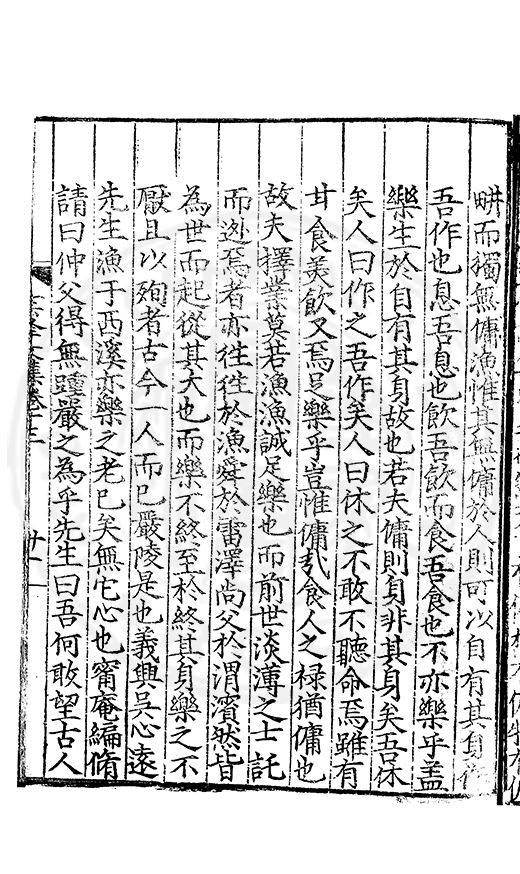 畊而獨無傭漁惟其無傭於人則可以自有其身作
吾作也息吾息也飲吾飲而食吾食也不亦樂乎盖
樂生於自有其身故也若夫傭則身非其身矣吾休
矣人曰作之吾作矣人曰休之不敢不聽命焉雖有
甘食美飲又焉足樂乎豈惟傭㢤食人之禄猶傭也
故夫擇業莫若漁漁誠足樂也而前世淡薄之士託
而迯焉者亦徃徃於漁舜於雷澤尚父於渭濱然皆
為世而起從其大也而樂不終至於終其身樂之不
厭且以殉者古今一人而已嚴陵是也義興吳心遠
先生漁于西溪亦樂之老巳矣無它心也甯庵編脩
請曰仲父得無踵嚴之為乎先生曰吾何敢望古人